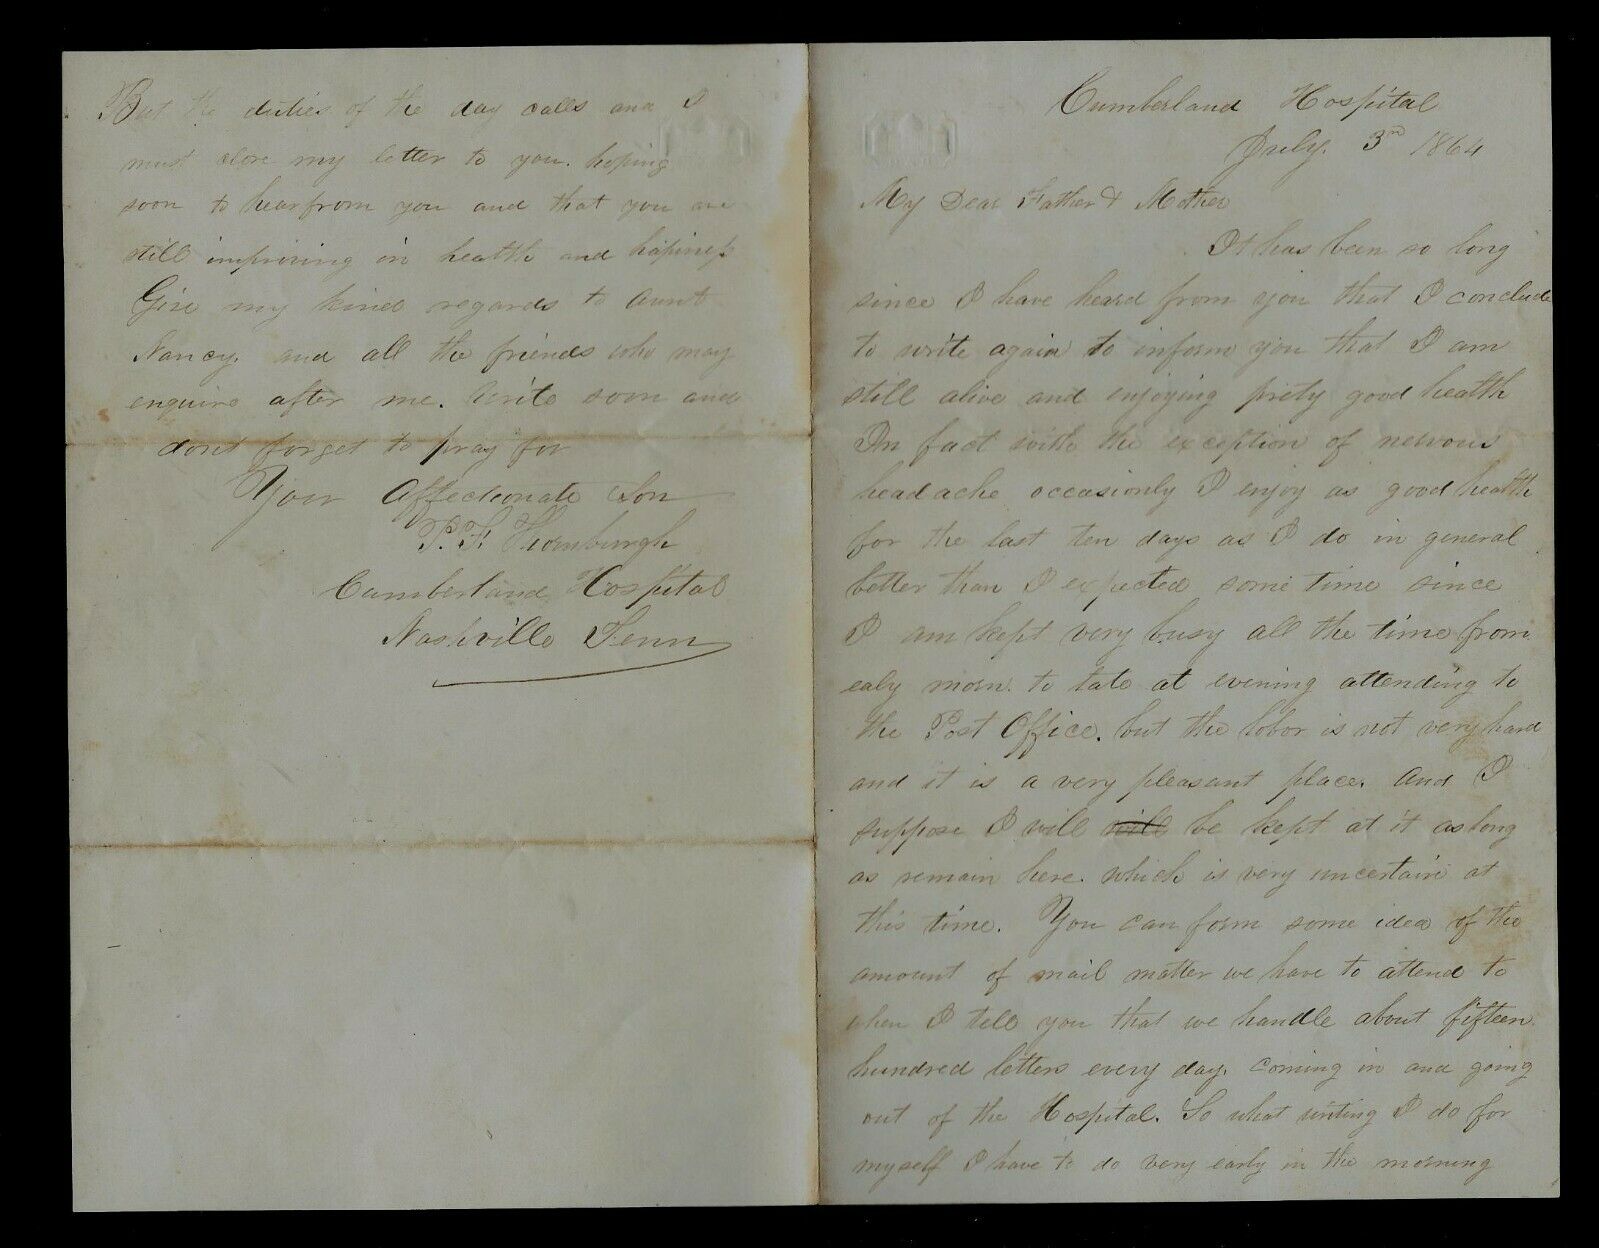 Cumberland Hospital
July. 3rd 1864
My Dear Father & Mother
It has been so long
since I have heard from you that I conclude
to write again to inform you that I am
still alive and enjoying prety good health
In fact with the exception of nervous
headache occasionly I enjoy as good health
for the last ten days as I do in general
better than I expected some time since
I am kept very busy all the time from
ealy morn. to late at evening attending to
the Post Office. but the labor is not very hard
and it is a very pleasant place. And I
suppose I will will be kept at it as long
as remain here. which is very uncertain at
this time. You can form some idea of the
amount of mail matter we have to attend to
when I tell you that we handle about fifteen
hundred letters every day. coming in and going
out of the Hospital. So what writing I do for
myself I have to do very early in the morning
But the duties of the day calls and I
must close my letter to you. hoping
soon to hear from you and that you are
still improving in health and hapiness
Give my kind regards to Aunt
Nancy. and all the friends who may
enquire after me. Write soon and
dont forget to pray for
Your Affectionate Son
P. F. Thornburgh
Cumberland Hospital
Nashville Tenn